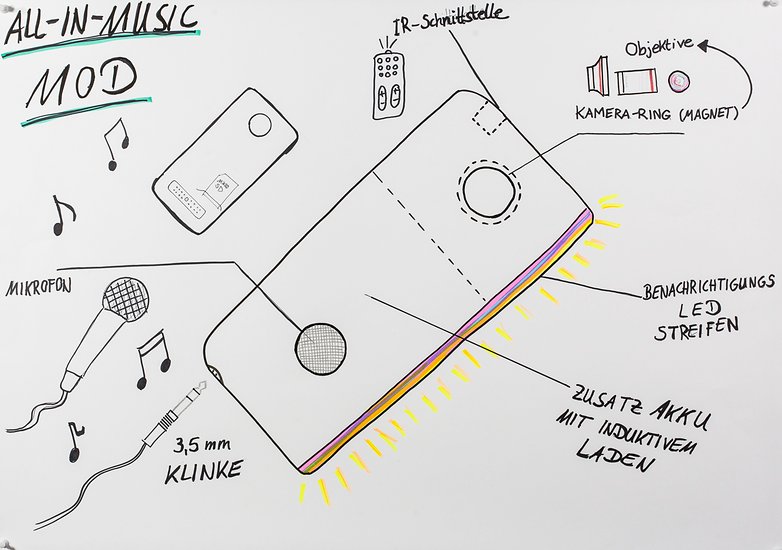 ALL-IN-MUSIC
MOD
IR-Schnittstelle
Objektive
KAMERA-RING (MAGNET)
MIKROFON
BENACHRICHTIGUNGS
LED
STREIFEN
ZUSATZ AKKU
MIT INDUKTIVEM
LADEN
3,5 mm
KLINKE